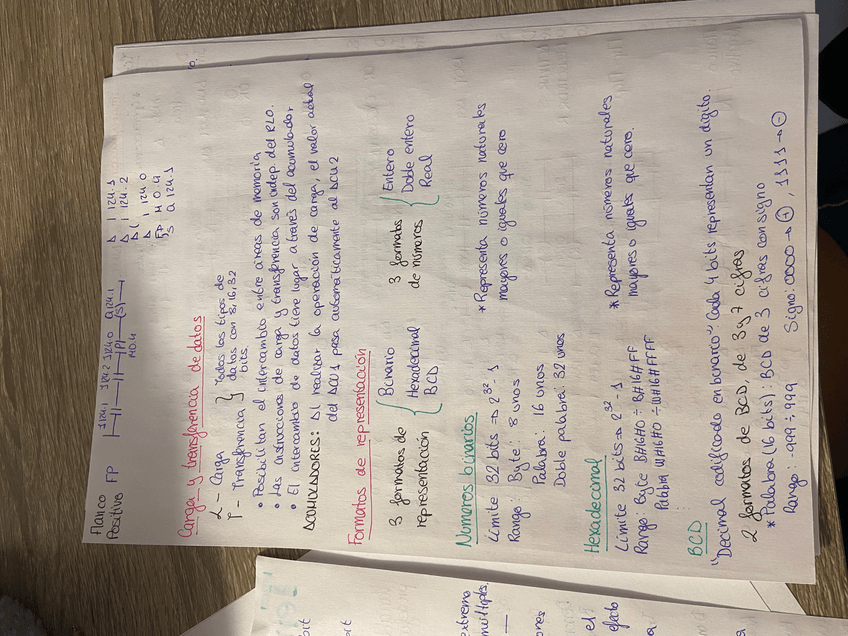 Flanco
Positivo FP
I124.1 I124.2 I124.0 Q124.1
(P) (S)
M0.4
A I 124.1
A I 124.2
A(
A I 124.0
FP M 0.4
)
S Q 124.1
Carga y transferencia de datos
L - Carga
T - Transferencia
Todos los tipos de
datos con 8, 16, 32
bits
• Posibilitan el intercambio entre áreas de memoria
• Las instrucciones de carga y transferencia son indep. del RLO.
• El intercambio de datos tiene lugar a través del acumulador
ACUMULADORES: Al realizar la operación de carga, el valor actual
del ACU 1 pasa automáticamente al ACU 2
Formatos de representación
3 formatos de
representación
Binario
Hexadecimal
BCD
3 formatos
de números
Entero
Doble entero
Real
Números binarios
Límite 32 bits ⇒ 2³² - 1
Rango: Byte: 8 unos
Palabra: 16 unos
Doble palabra: 32 unos
*Representa números naturales
mayores o iguales que cero
Hexadecimal
Límite 32 bits ⇒ 2³² - 1
Rango: Byte B#16#0 ÷ B#16#FF
Palabra W#16#0 ÷ W#16#FFFF
*Representa números naturales
mayores o iguales que cero.
BCD
"Decimal codificado en binario": Cada 4 bits representan un dígito.
2 formatos de BCD, de 3 y 7 cifras
* Palabra (16 bits): BCD de 3 cifras con signo
Rango: -999 ÷ 999 Signo: 0000 → +, 1111 → -
bit
bit
extremo
múltipls.
ones
el
efecto
a